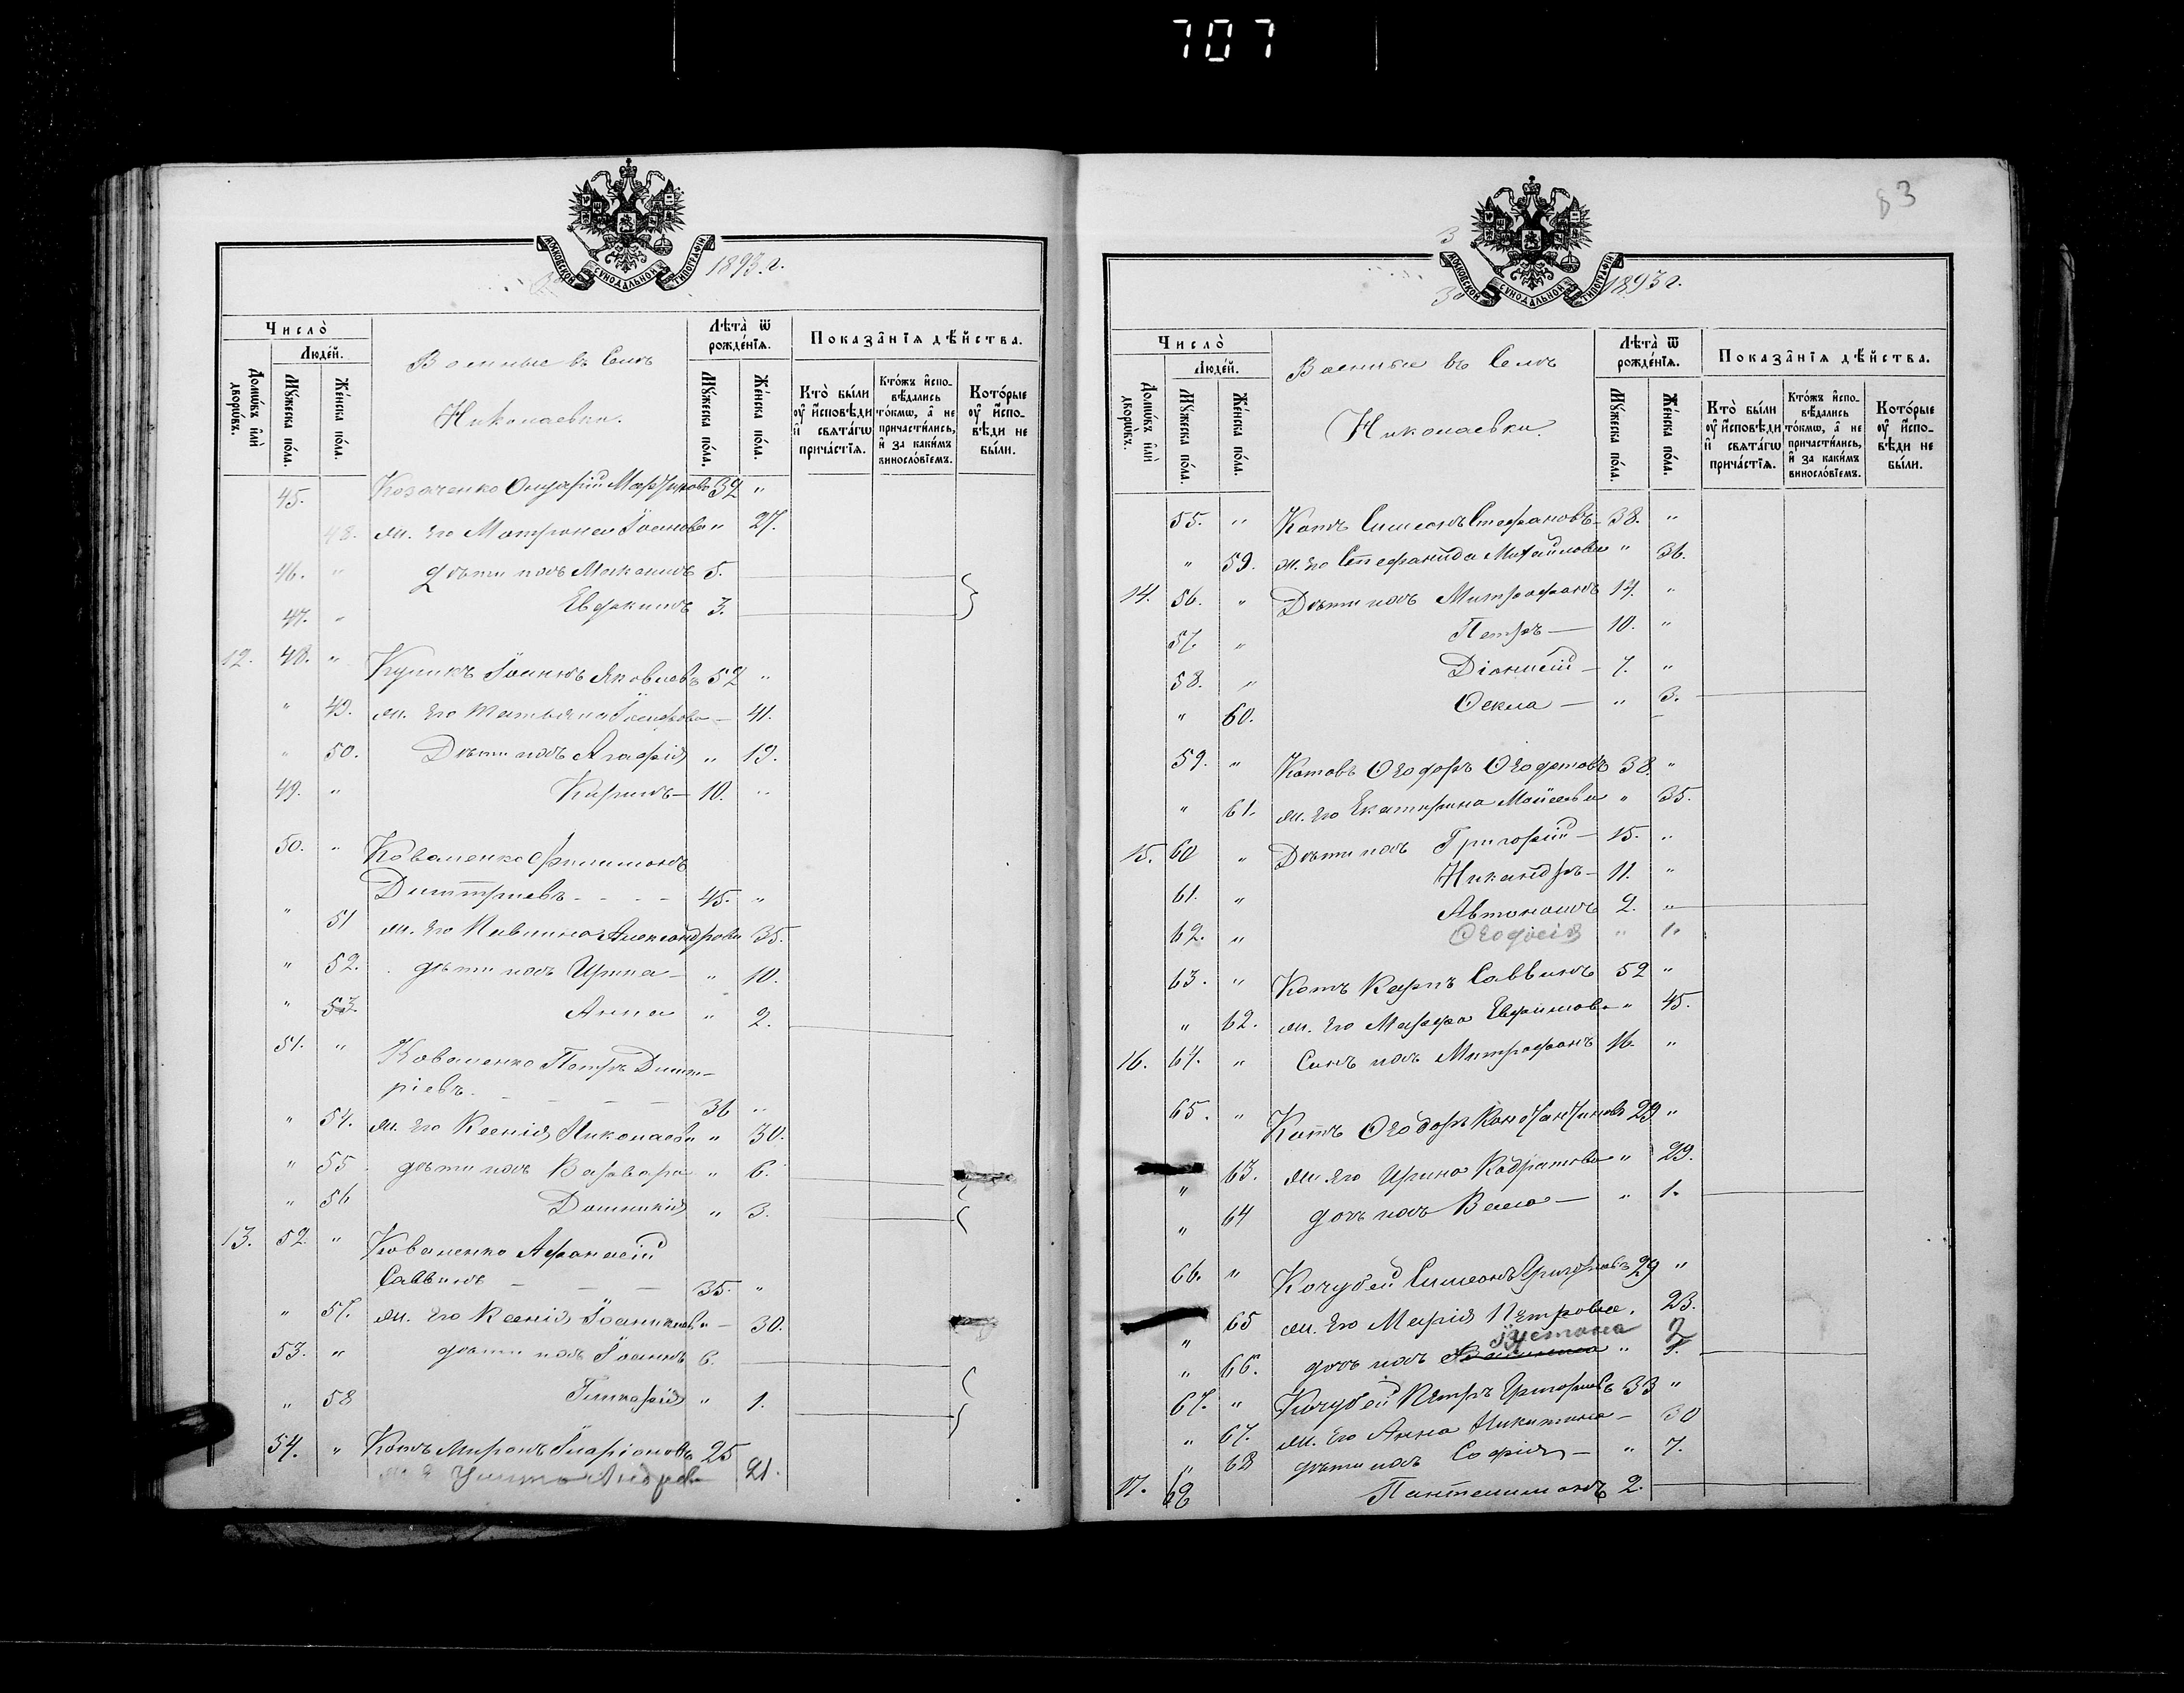 707
МОСКОВСКОЙ СѴНОДАЛЬНОЙ ТИПОГРАФІИ.
1893. г.
Число̀
Людей.
Домѡ́въ и҆лѝ дворѡ́въ.
Мꙋ́жеска по́ла.
Же́нска по́ла.
Военные въ Селѣ
Николаевки.
Лѣта̀ ѿ рожде́нїѧ.
Мꙋ́жеска по́ла.
Же́нска по́ла.
Показа̑нїѧ дѣ́йства.
Кто̀ бы́ли оу҆ и҆сповѣ́ди и҆ свѧта́гѡ прича́стїѧ.
Кто́жъ и҆спо-вѣ́дались то́кмѡ, а҆ не причасти́лись, и҆ за каки́мъ винослѡ́вїемъ.
Кото́рые оу҆ и҆спо-вѣ́ди не бы́ли.
45. Козаченко Онуфрій Мартиновъ 32 "
48. ж. его Матрона Іоанова " 27.
46. " Дѣти ихъ Максимъ 5.
47. " Евфимъ 3.
12. 48. " Куликъ Іоаннъ Яковлевъ 52 "
" 49. ж. его Татьяна Іосифова — 41.
" 50. Дѣти ихъ Агафія " 19.
49. " Кирилъ — 10. "
50. " Коваленко Филимонъ
Димитріевъ - - - - 45. "
" 51 ж. его Павлина Александрова 35.
" 52. дѣти ихъ Ирина — " 10.
" 53. Анна " 2.
51. " Коваленко Петръ Димит-
ріевъ. — — — 36 "
" 54. ж. его Ксенія Николаева " 30.
" 55 дѣти ихъ Варвара " 6.
" 56 Домникія " 3.
13. 52. " Коваленко Афанасій
Саввинъ — — — 35. "
" 57. ж. его Ксенія — 30.
53. " дѣти ихъ Іоаннъ 6.
" 58 Гликерія " 1.
54. " Котъ Миронъ Иларіоновъ 25
21.
83
МОСКОВСКОЙ СѴНОДАЛЬНОЙ ТИПОГРАФІИ.
1893 г.
Число̀
Людей.
Домѡ́въ и҆лѝ дворѡ́въ.
Мꙋ́жеска по́ла.
Же́нска по́ла.
Военные въ Селѣ
Николаевки.
Лѣта̀ ѿ рожде́нїѧ.
Мꙋ́жеска по́ла.
Же́нска по́ла.
Показа̑нїѧ дѣ́йства.
Кто̀ бы́ли оу҆ и҆сповѣ́ди и҆ свѧта́гѡ прича́стїѧ.
Кто́жъ и҆спо-вѣ́дались то́кмѡ, а҆ не причасти́лись, и҆ за каки́мъ винослѡ́вїемъ.
Кото́рые оу҆ и҆спо-вѣ́ди не бы́ли.
55. " Котъ Симеонъ Стефановъ — 38. "
" 59. ж. его Стефанида Михайлова " 36.
14. 56. " Дѣти ихъ Митрофанъ 14. "
57. " Петръ — 10. "
58. " Діонисій — 7. "
" 60. Ѳекла — " 3.
59. " Котовъ Ѳеодоръ Ѳеодотовъ 38. "
" 61. ж. его Екатерина Моисеева " 35.
15. 60 " Дѣти ихъ Григорій — 15. "
61. " Никандръ — 11. "
62. " Автономъ 2. "
Ѳеодосія " 1.
63. " Котъ Карпъ Саввинъ 52 "
" 62. ж. его Марфа Евфимова " 45.
16. 64. " Сынъ ихъ Митрофанъ 16. "
65. " Котъ Ѳеодоръ Константиновъ 29 "
" 63. ж. его Ирина Кодратова " 29.
" 64 дочь ихъ Васса — " 1.
66. " Кочубей Симеонъ Григорьевъ 29 "
" 65 ж. его Марія Петрова. 23.
" 66. дочь ихъ Іустина " 2
67. " Кочубей Петръ Григорьевъ 33 "
" 67. ж. его Анна Никитина — 30
" 68 дѣти ихъ Софія — " 7.
17. 68 Пантелимонъ 2.